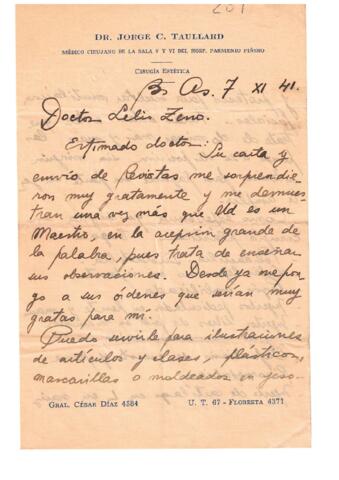 201
DR. JORGE C. TAULLARD
MÉDICO CIRUJANO DE LA SALA V Y VI DEL HOSP. PARMENIO PIÑERO
CIRUGÍA ESTÉTICA
Bs As. 7 XI 41.
Doctor Lelio Zeno.
Estimado doctor: Su carta y
envío de Revistas me sorprendie
ron muy gratamente y me demues
tran una vez más que Ud es un
Maestro, en la acepción grande de
la palabra, pues trata de enseñar
sus observaciones. Desde ya me pon
go a sus órdenes que serían muy
gratas para mí.
Puedo servirle para ilustraciones
de artículos y clases, plásticos,
mascarillas o moldeados en yeso
GRAL. CÉSAR DÍAZ 4584
U. T. 67 - FLORESTA 4371